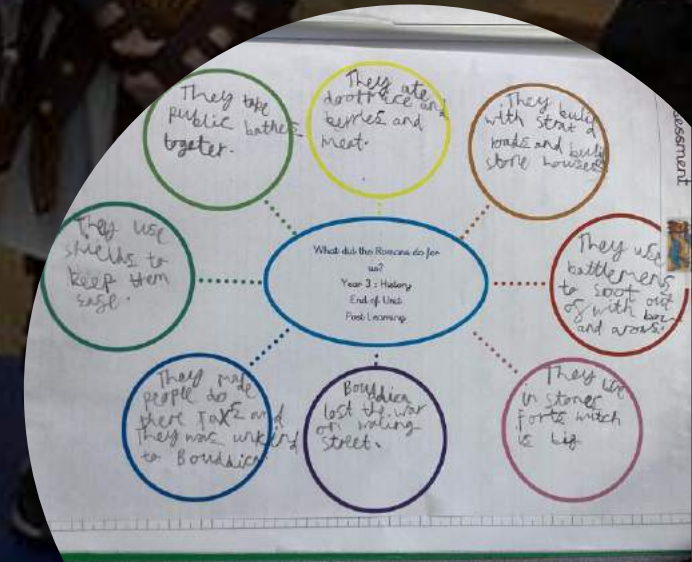 What did the Romans do for
us?
Year 3: History
End of Unit
Post Learning
They tape
public bathes
togeter.
They ate
and
berries and
meat.
They buly
with strat d
roads and buly
stone houses
They use
battlemens
to shoot out
of with
and arows.
They live
in stones
forts witch
is big
Bouddica
lost the war
on waling
street.
They made
people do
there taxs and
They was unkind
to Bouddica.
They use
shields to
keep them
safe.
essment